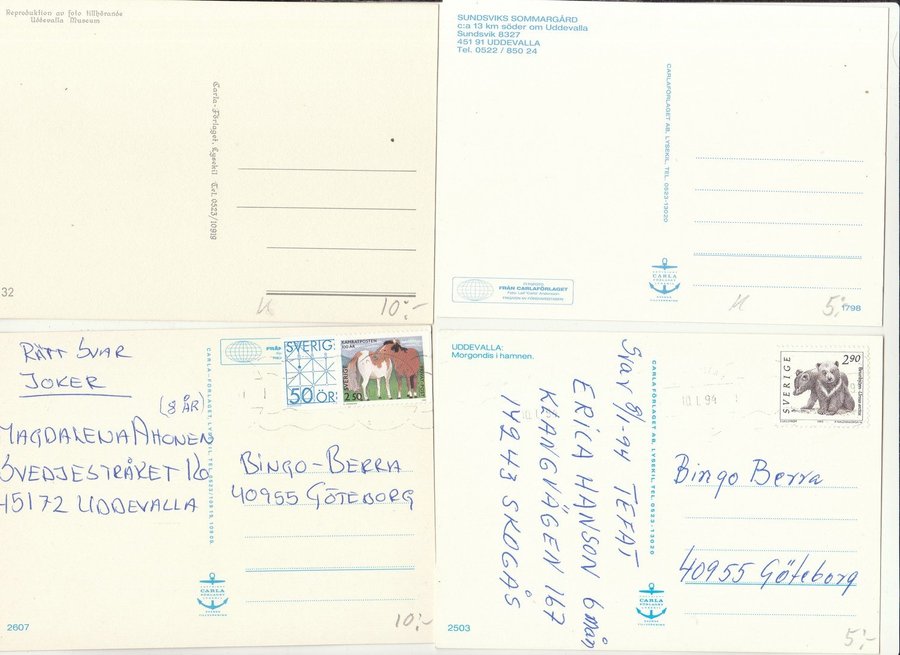 Reproduktion av foto tillhörande
Uddevalla Museum
Carla-Förlaget, Lysekil Tel. 0523/10918
32
10:-
SUNDSVIKS SOMMARGÅRD
c:a 13 km söder om Uddevalla
Sundsvik 8327
451 91 UDDEVALLA
Tel. 0522 / 850 24
CARLAFÖRLAGET AB, LYSEKIL, TEL. 0523-13020
FRÅN CARLAFÖRLAGET
CARLA
5:-
1798
RÄTT SVAR
JOKER
(8 ÅR)
MAGDALENA AHONEN
SVEDJESTRÅKET
45172 UDDEVALLA
SVERIGE
50 ÖR
SVERIGE
2.50
BINGO-BERRA
40955 GÖTEBORG
CARLA
2607
10:-
UDDEVALLA:
Morgondis i hamnen.
Svar 9/1-94 TEFAT
ERICA HANSON 6 mån
KLANGVÄGEN 167
142 43 SKOGÅS
CARLAFÖRLAGET AB, LYSEKIL TEL 0523-13020
10.1.94
SVERIGE
2.90
Bingo Berra
40955 Göteborg
CARLA
2503
5:-